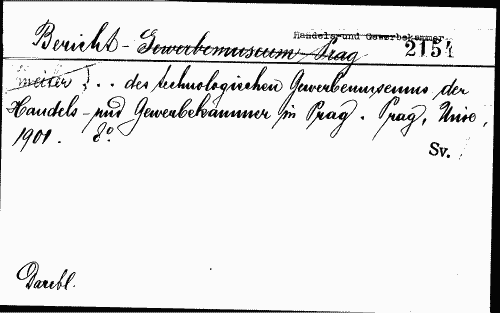 Handels-und Gewerbekammer
Bericht - Gewerbemuseum Prag 2154
.. des technologischen Gewerbemuseums der
Handels- und Gewerbekammer in Prag. Prag, Unie,
1901. 8°.
Sv.